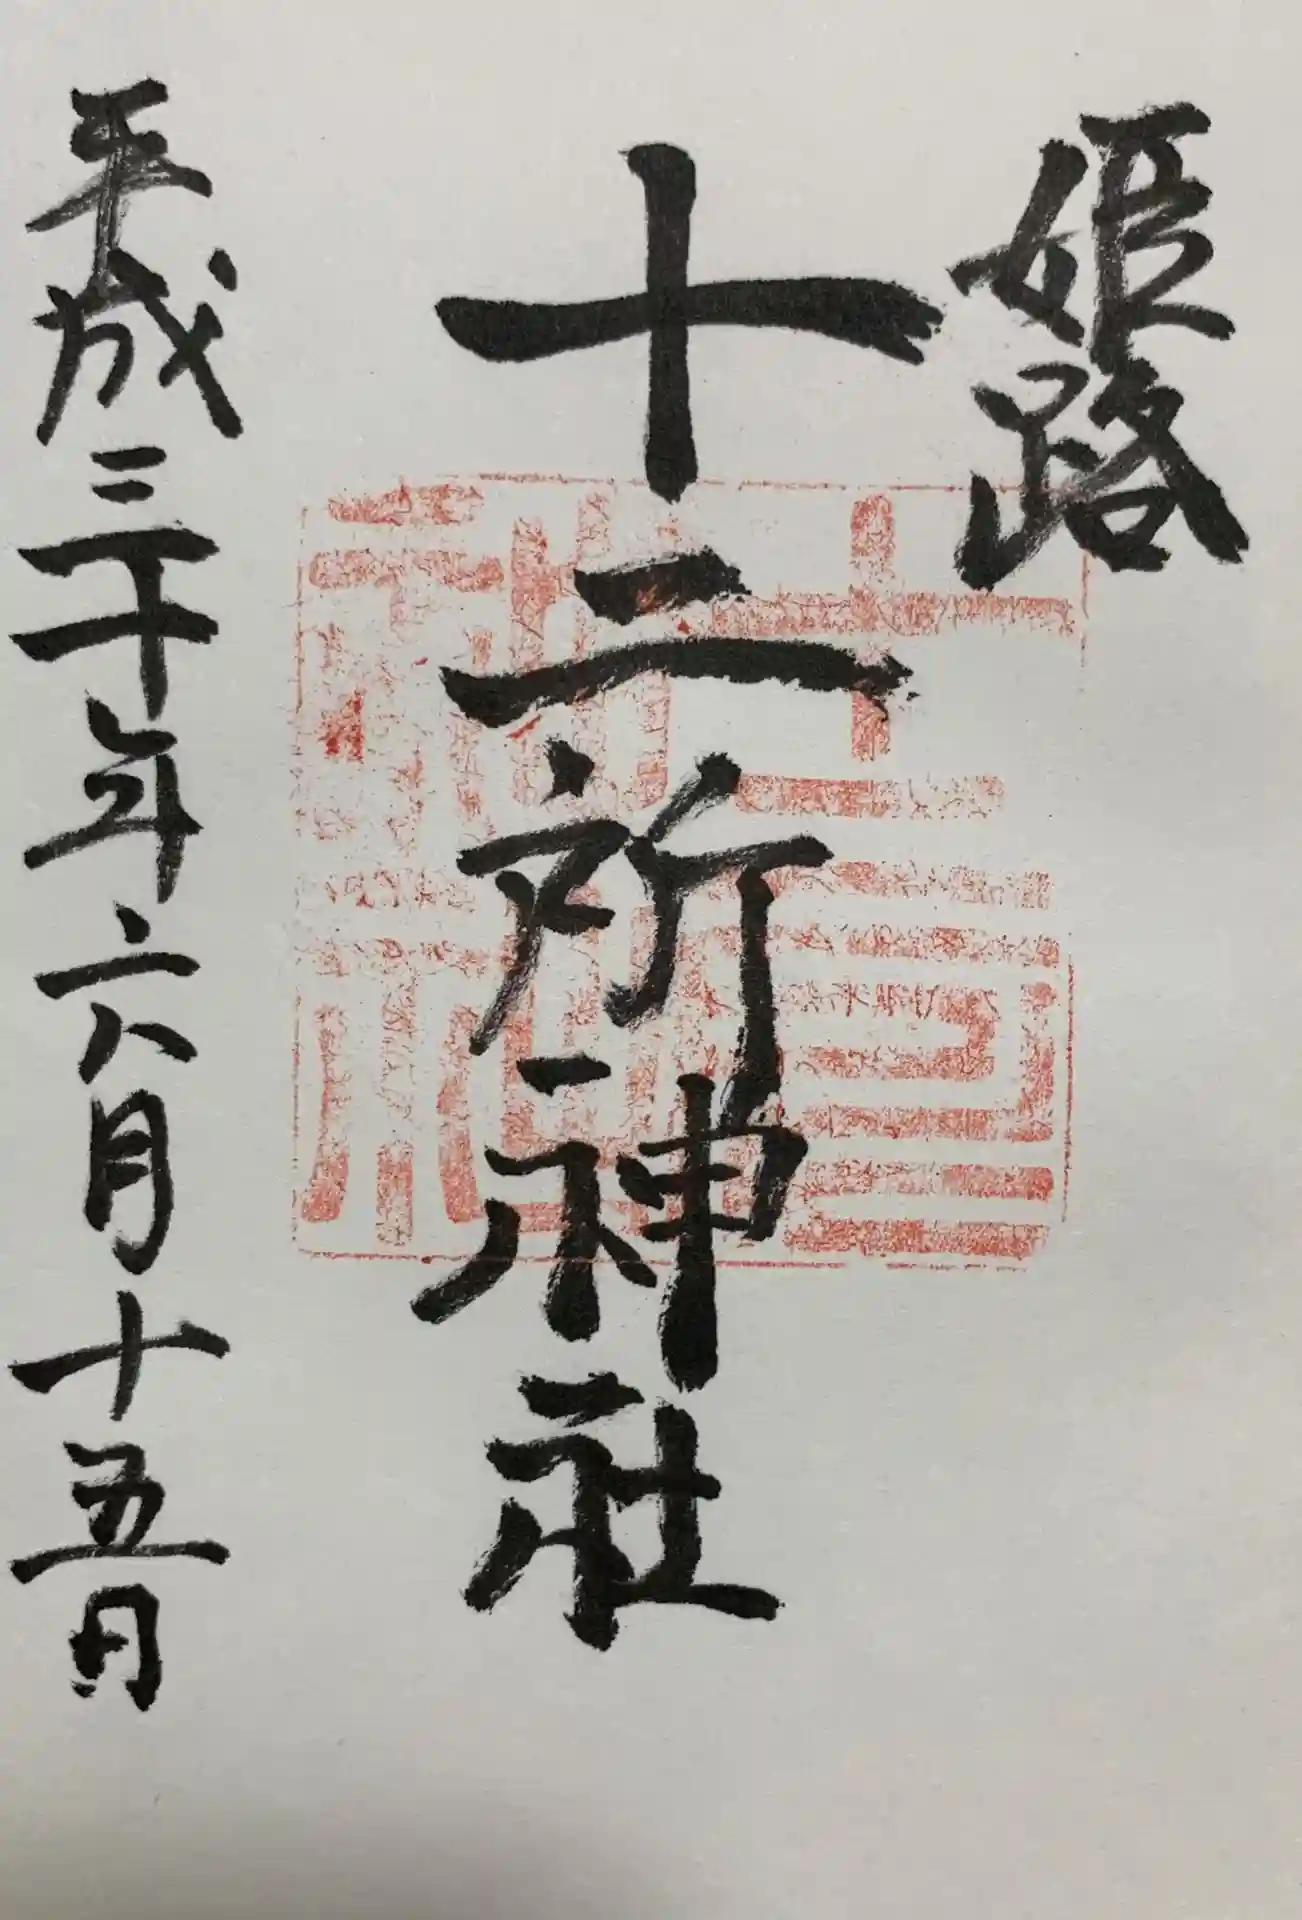 姫路
十二所神社
平成三十年六月十五日